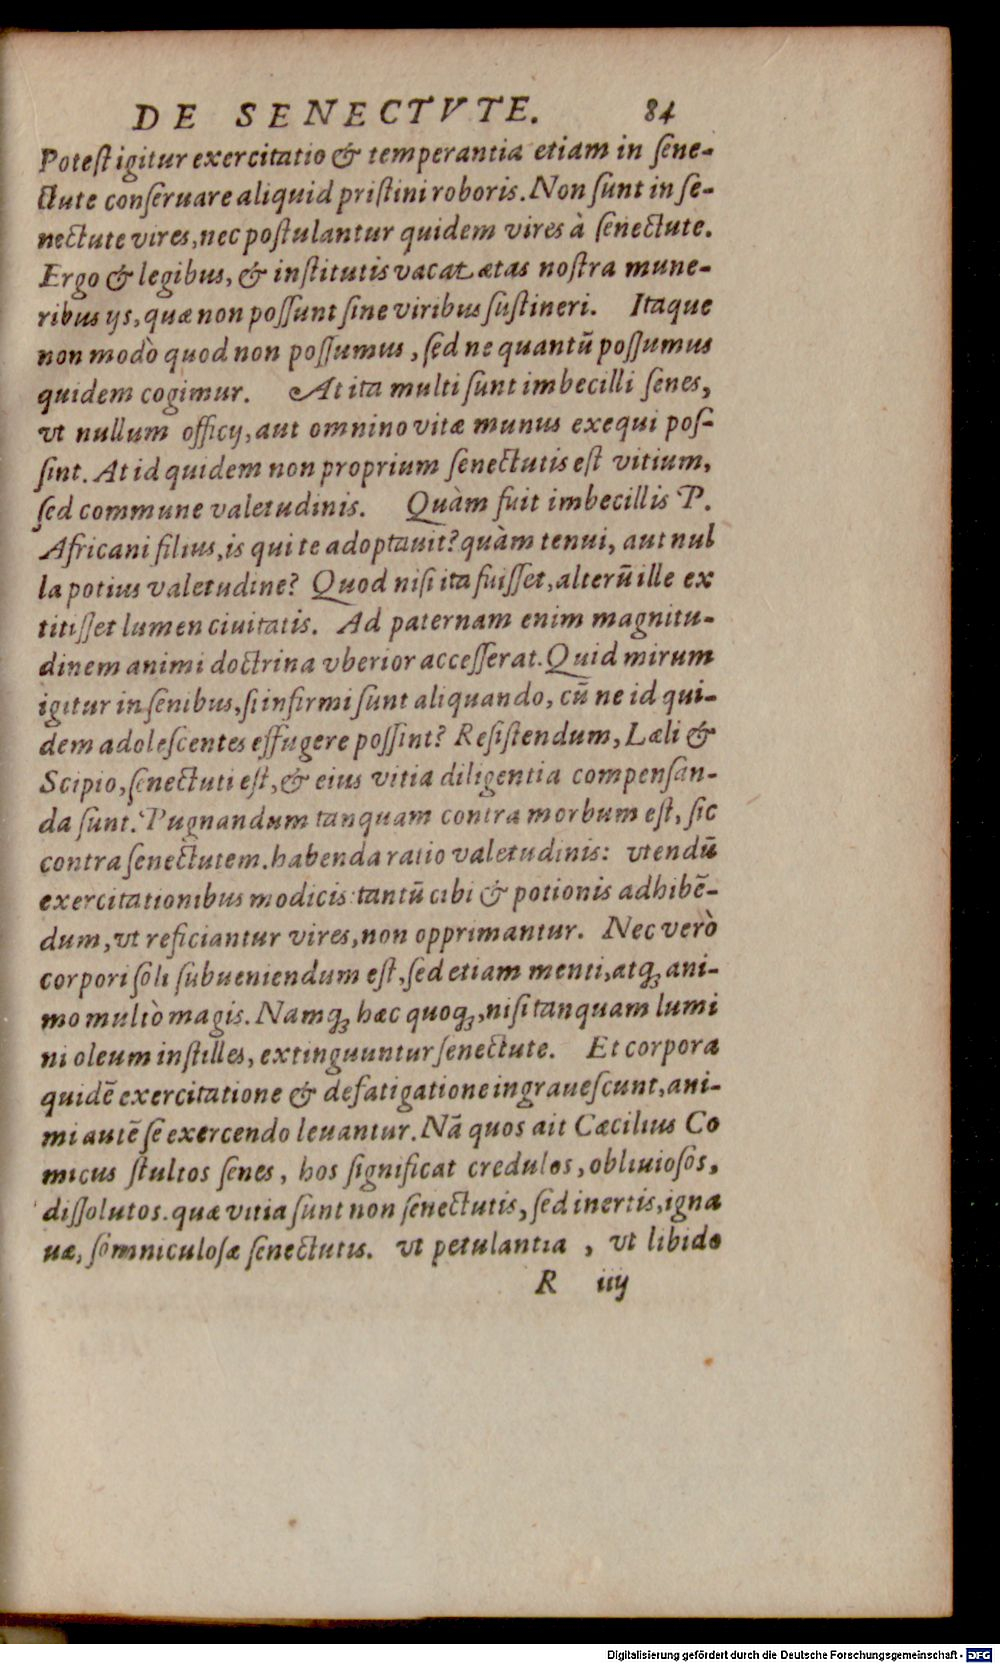 DE SENECTVTE. 84
Poteſt igitur exercitatio & temperantia etiam in ſene-
ctute conſeruare aliquid priſtini roboris. Non ſunt in ſe-
nectute vires, nec poſtulantur quidem vires à ſenectute.
Ergo & legibus, & inſtitutis vacat ætas noſtra mune-
ribus ijs, quæ non poſſunt ſine viribus ſuſtineri. Itaque
non modò quod non poſſumus, ſed ne quantū poſſumus
quidem cogimur. At ita multi ſunt imbecilli ſenes,
vt nullum officij, aut omnino vitæ munus exequi poſ-
ſint. At id quidem non proprium ſenectutis eſt vitium,
ſed commune valetudinis. Quàm fuit imbecillis P.
Africani filius, is qui te adoptauit? quàm tenui, aut nul
la potius valetudine? Quod niſi ita fuiſſet, alterū ille ex
titiſſet lumen ciuitatis. Ad paternam enim magnitu-
dinem animi doctrina vberior acceſſerat. Quid mirum
igitur in ſenibus, ſi infirmi ſunt aliquando, cū ne id qui-
dem adoleſcentes effugere poſſint? Reſiſtendum, Læli &
Scipio, ſenectuti eſt, & eius vitia diligentia compenſan-
da ſunt. Pugnandum tanquam contra morbum eſt, ſic
contra ſenectutem. habenda ratio valetudinis: vtendū
exercitationibus modicis: tantū cibi & potionis adhibē-
dum, vt reficiantur vires, non opprimantur. Nec verò
corpori ſoli ſubueniendum eſt, ſed etiam menti, atq; ani-
mo multò magis. Namq; hæc quoq;, niſi tanquam lumi
ni oleum inſtilles, extinguuntur ſenectute. Et corpora
quidē exercitatione & defatigatione ingraueſcunt, ani-
mi autē ſe exercendo leuantur. Nā quos ait Cæcilius Co
micus ſtultos ſenes, hos ſignificat credulos, obliuioſos,
diſſolutos. quæ vitia ſunt non ſenectutis, ſed inertis, igna
uæ, ſomniculoſæ ſenectutis. vt petulantia, vt libido
R iiij
Digitalisierung gefördert durch die Deutsche Forschungsgemeinschaft - DFG